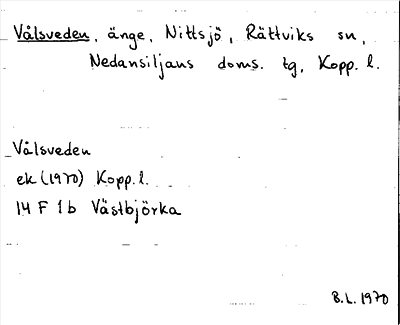 Vålsveden, änge, Nittsjö, Rättviks sn,
Nedansiljans doms. tg, Kopp. l.
Vålsveden
ek (1970) Kopp. l.
14 F 1 b Västbjörka
B.L. 1970